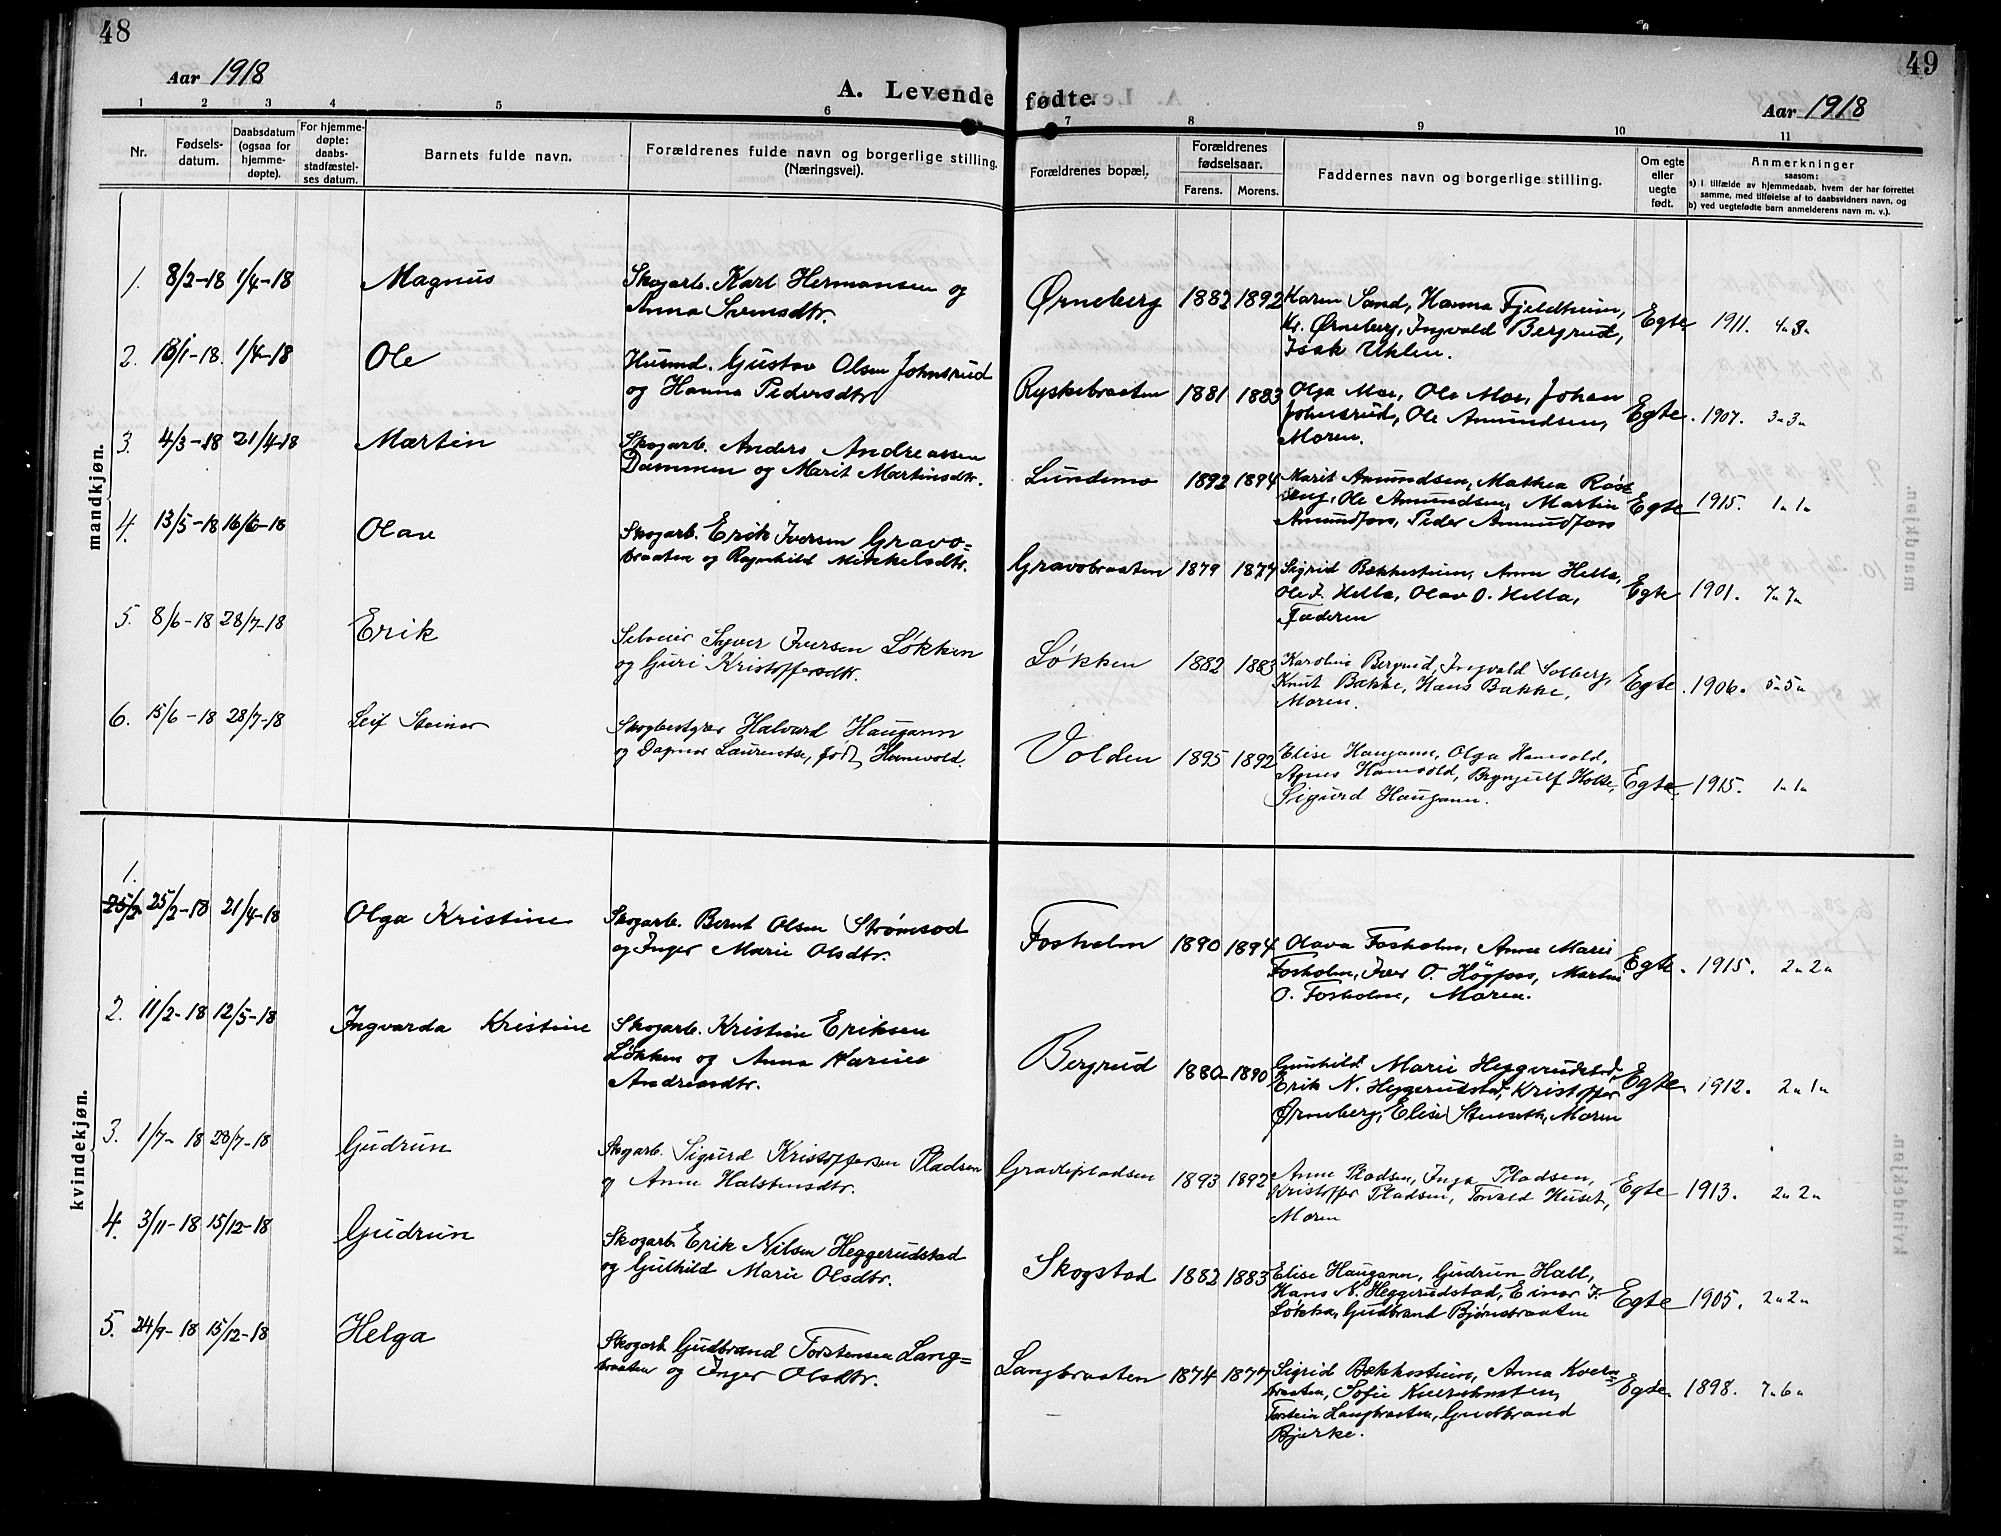 48
49
Aar 1918
A. Levende fødte.
Aar 1918
1 2 3 4 5 6 7 8 9 10 11
Nr.
Fødsels-
datum.
Daabsdatum
(ogsaa for
hjemme-
døpte).
For hjemme-
døpte:
daabs-
stadfæstel-
ses datum.
Barnets fulde navn.
Forældrenes fulde navn og borgerlige stilling.
(Næringsvei).
Forældrenes bopæl.
Forældrenes
fødselsaar.
Farens. Morens.
Faddernes navn og borgerlige stilling.
Om egte
eller
uegte
født.
Anmerkninger
saasom:
a) I tilfælde av hjemmedaab, hvem der har forrettet
samme, med tilføielse af to daabsvidners navn, og
b) ved uegtefødte barn anmelderens navn m. v.).
mandkjøn.
1. 8/2-18 1/4-18 Magnus Skogarb. Karl Hermansen og
Anna Svensdtr.
Ørneberg 1882 1892 Karen Sand, Hanna Fjeldheim,
Kr. Ørneberg, Ingvald Bergrud,
Isak Uhlen.
Egte 1911. 4 8
2. 1/4-18 Ole Husmd. Gustav Olsen Johnsrud
og Hanna Pedersdtr.
Ryskebraaten 1881 1883 Olga Moe, Ole Moe, Johan
Johnsrud, Ole Amundsen,
Moren.
Egte. 1907. 3 3
3. 4/3-18 21/4-18 Martin Skogarb. Anders Andreassen
Dammen og Marit Martinsdtr.
Lundemo 1892 1894 Marit Amundsen, Mathea
Ole Amundsen, Martin
Peder
Egte 1915. 1 1
4. 13/5-18 16/6-18 Olav Skogarb. Erik Iversen Gravo=
braaten og Ragnhild Mikkelsdtr.
Gravobraaten 1879 1877 Sigrid Bækkestuen, Anne Hella,
Ole I. Hella, Olav O. Hella,
Faderen
Egte 1901. 7 7
5. 8/6-18 28/7-18 Erik Syver Iversen Løkken
og Guri Kristoffersdtr.
Løkken 1882 1883 Karoline Bergrud, Ingvald Solberg,
Knut Bakke, Hans Bakke,
Moren.
Egte. 1906. 5 5
6. 15/6-18 28/7-18 Leif Steinar Skogbestyrer Halvard Haugann
og Dagmar født Hanevold.
Volden 1895 1892 Elise Haugann, Olga Hanevold,
Agnes Hanevold, Brynjulf
Sigurd Haugann.
Egte. 1915. 1 1
kvindekjøn.
1.
25/2 25/2-18 21/4-18 Olga Kristine Skogarb. Bernt Olsen Strømsod
og Inger Marie Olsdtr.
Fosholm 1890 1894 Olava Fosholm, Anne Marie
Fosholm, Iver O. Høgfoss, Martin
O. Fosholm, Moren.
Egte. 1915. 2 2
2. 11/2-18 12/5-18 Ingvarda Kristine Skogarb. Kristian Eriksen
Løkken og Anna Karine
Andreasdtr.
Bergrud 1880 1890 Gunhild Marie Heggerudstad,
Erik N. Heggerudstad, Kristoffer
Ørneberg, Elise Stenseth, Moren
Egte. 1912. 2 1
3. 1/7-18 28/7-18 Gudrun Skogarb. Sigurd Kristoffersen Pladsen
og Anne Halstensdtr.
Gravlipladsen 1893 1892 Anne Pladsen, Inga Pladsen,
Kristoffer Pladsen, Torvald Huset,
Moren
Egte 1913. 2 2
4. 3/11-18 15/12-18 Gudrun Skogarb. Erik Nilsen Heggerudstad
og Gulhild Marie Olsdtr.
Skogstad 1882 1883 Elise Haugann, Gudrun Hall,
Hans N. Heggerudstad, Einar I.
Løkka, Gudbrand Bjørnebraaten
Egte 1905. 2 2
5. 24/9-18 15/12-18 Helga Skogarb. Gudbrand Torstensen Lang=
braaten og Inger Olsdtr.
Langbraaten 1874 1877 Sigrid Bækkestuen, Anna Kvern=
braaten, Sofie
Torstein Langbraaten, Gudbrand
Bjerke.
Egte. 1898. 7 6